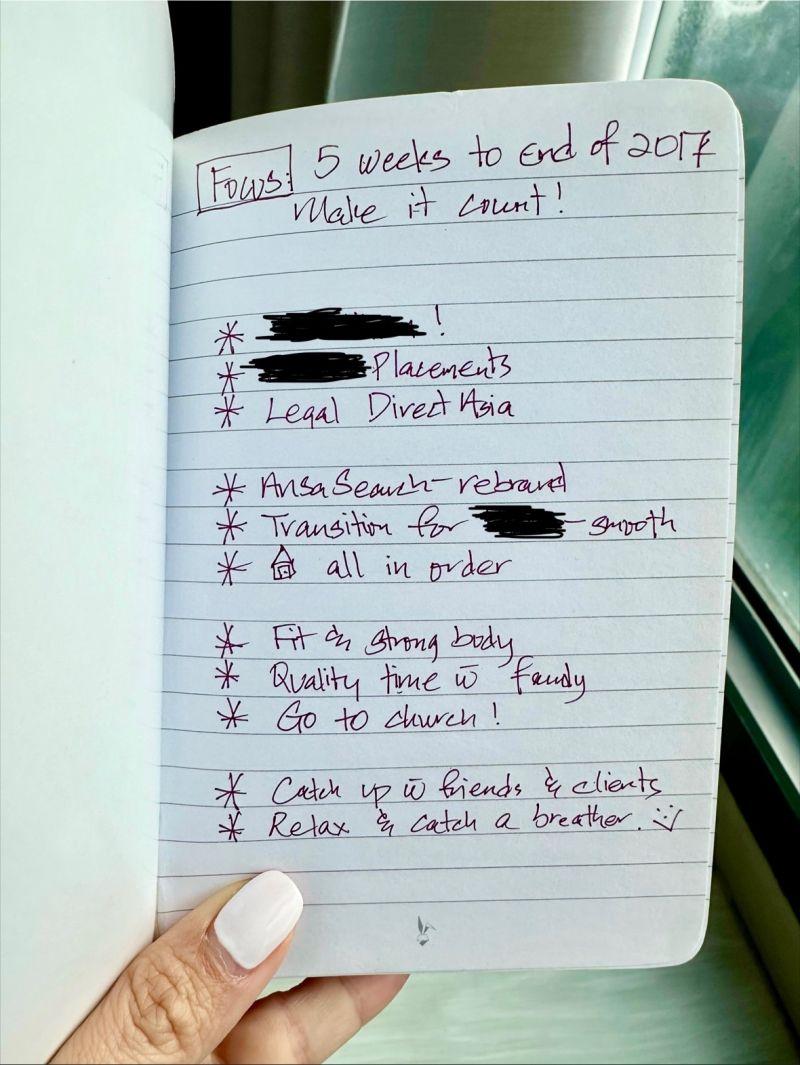 Focus: 5 weeks to end of 2017
Make it count!
* !
* Placements
* Legal Direct Asia
* Ansa Search - rebrand
* Transition for - smooth
* all in order
* Fit & strong body
* Quality time w̄ family
* Go to church!
* Catch up w̄ friends & clients
* Relax & catch a breather. :)